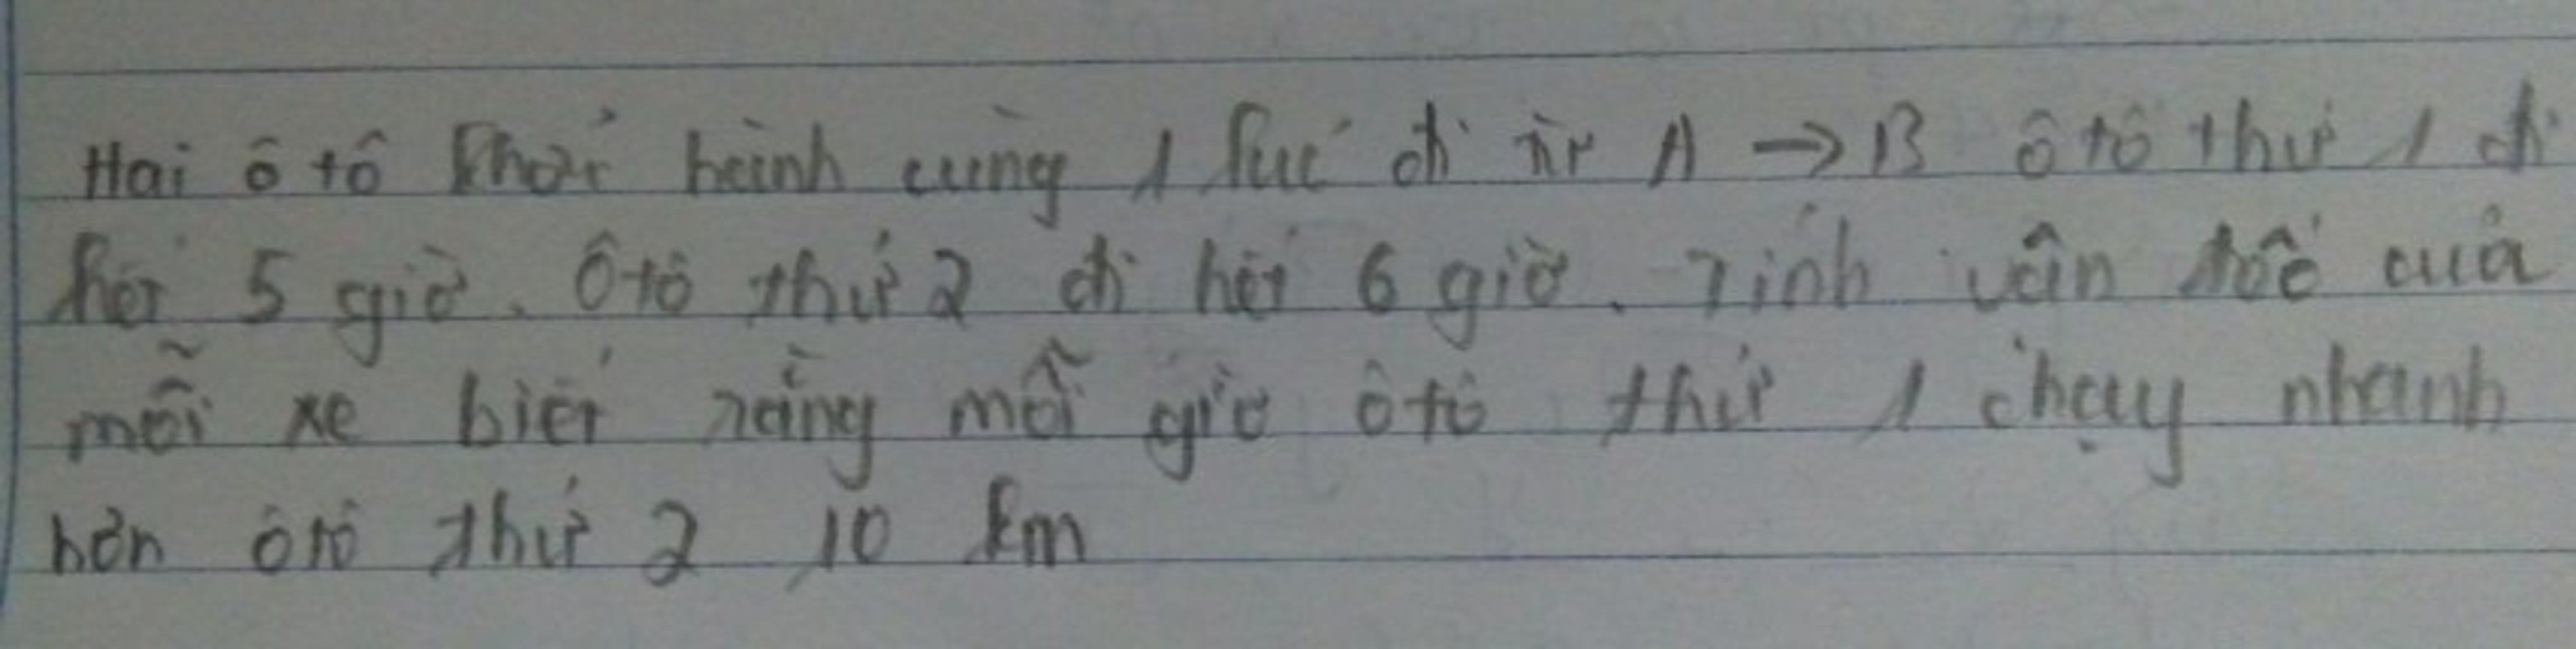 Hai ô tô khởi hành cùng 1 lúc đi từ A → B ô tô thứ 1 đi
hết 5 giờ. Ô tô thứ 2 đi hết 6 giờ. Tính vân tốc của
mỗi xe biết rằng mỗi giờ ô tô thứ 1 chạy nhanh
hơn ô tô thứ 2 10 km